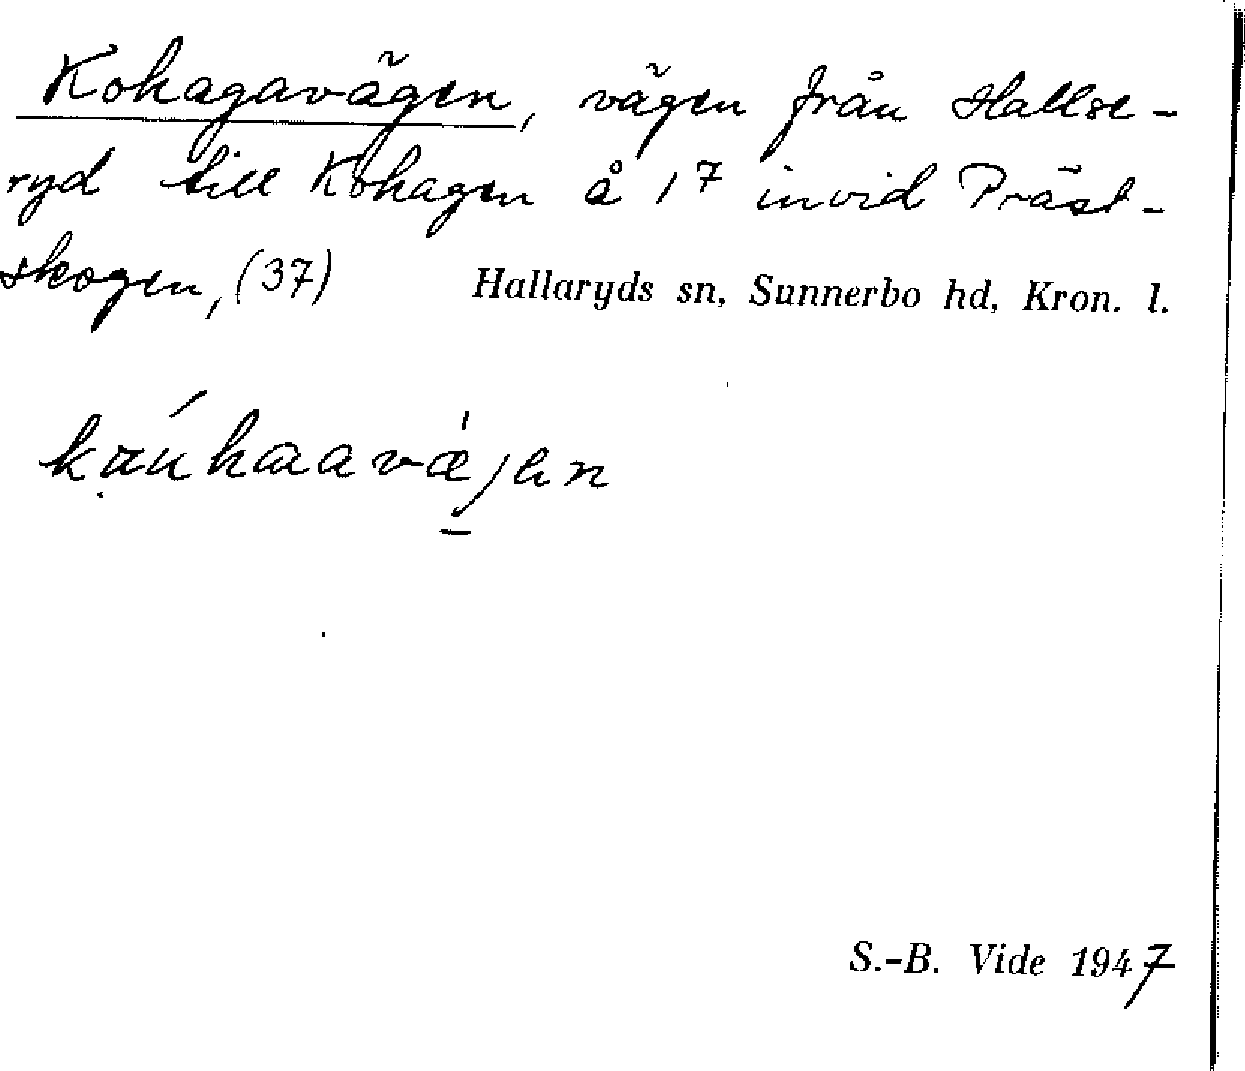 Kohagavägen, vägen från Hallse-
ryd till Kohagen å 1⁷ invid Präst-
skogen, (37) Hallaryds sn, Sunnerbo hd, Kron. l.
S.-B. Vide 1947